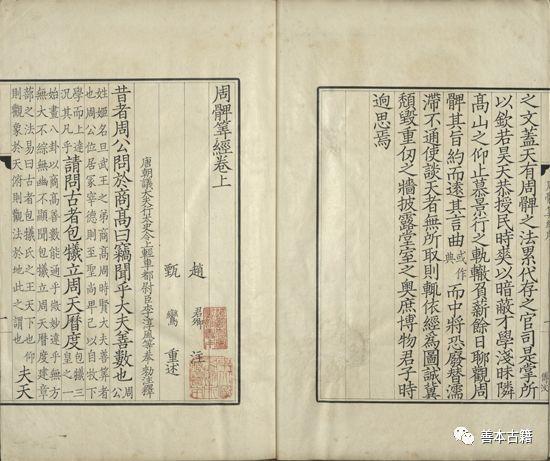 之文蓋天有周髀之法累代存之官司是掌所
以欽若昊天恭授民時爽以暗蔽才學淺昧隣
高山之仰止慕景行之軌轍負薪餘日聊觀周
髀其旨約而遠其言曲或作典而中將恐廢替濡
滯不通使談天者無所取則輒依經為圖誠冀
頹毀重仞之牆披露堂室之奥庶博物君子時
迥思焉
周髀筭經卷上
趙君卿注
甄鸞重述
唐朝議大夫行太史令上輕車都尉臣李淳風等奉勑注釋
昔者周公問於商高曰竊聞乎大夫善數也周公
姓姬名旦武王之弟商高周時賢大夫善筭者
也周公位居冢宰德則至聖尚卑己以自牧下
學而上達況其凡乎請問古者包犧立周天曆度包犧三皇之一
始畫八卦以商高善數能通乎微妙達乎無方
無大不綜無幽不顯聞包犧立周天曆度建章
蔀之法易曰古者包犧氏之王天下也仰
則觀象於天俯則觀法於地此之謂也夫天
善本古籍